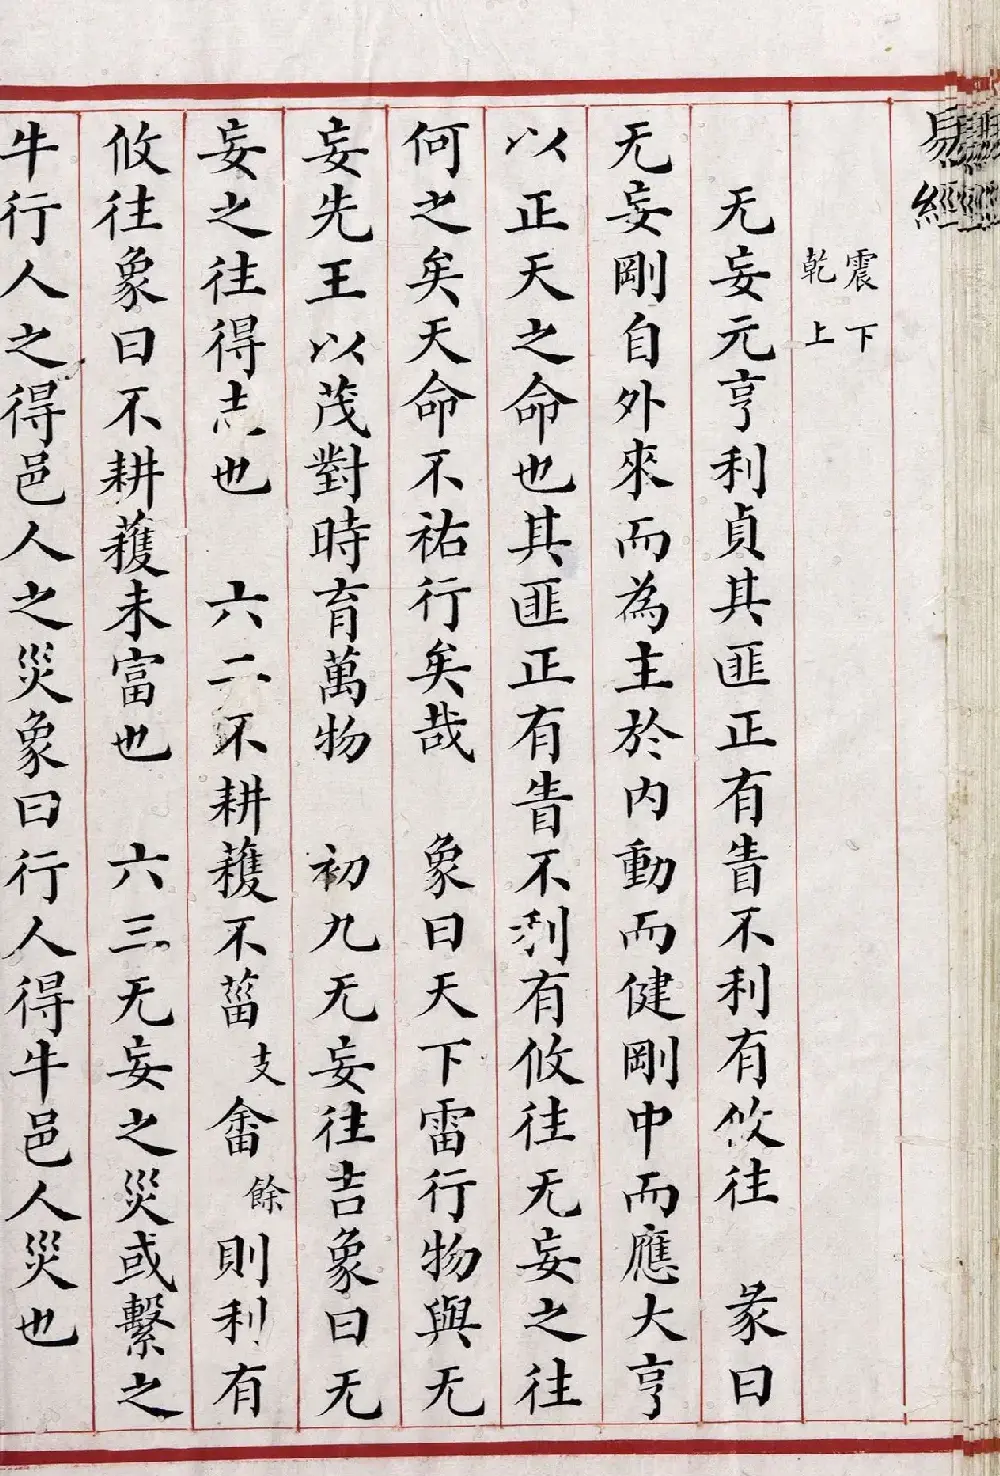 易經
震下
乾上
无妄元亨利貞其匪正有眚不利有攸往　彖曰
无妄剛自外來而為主於內動而健剛中而應大亨
以正天之命也其匪正有眚不利有攸往无妄之往
何之矣天命不祐行矣哉　象曰天下雷行物與无
妄先王以茂對時育萬物　初九无妄往吉象曰无
妄之往得志也　六二不耕穫不菑支畬餘則利有
攸往象曰不耕穫未富也　六三无妄之災或繫之
牛行人之得邑人之災象曰行人得牛邑人災也